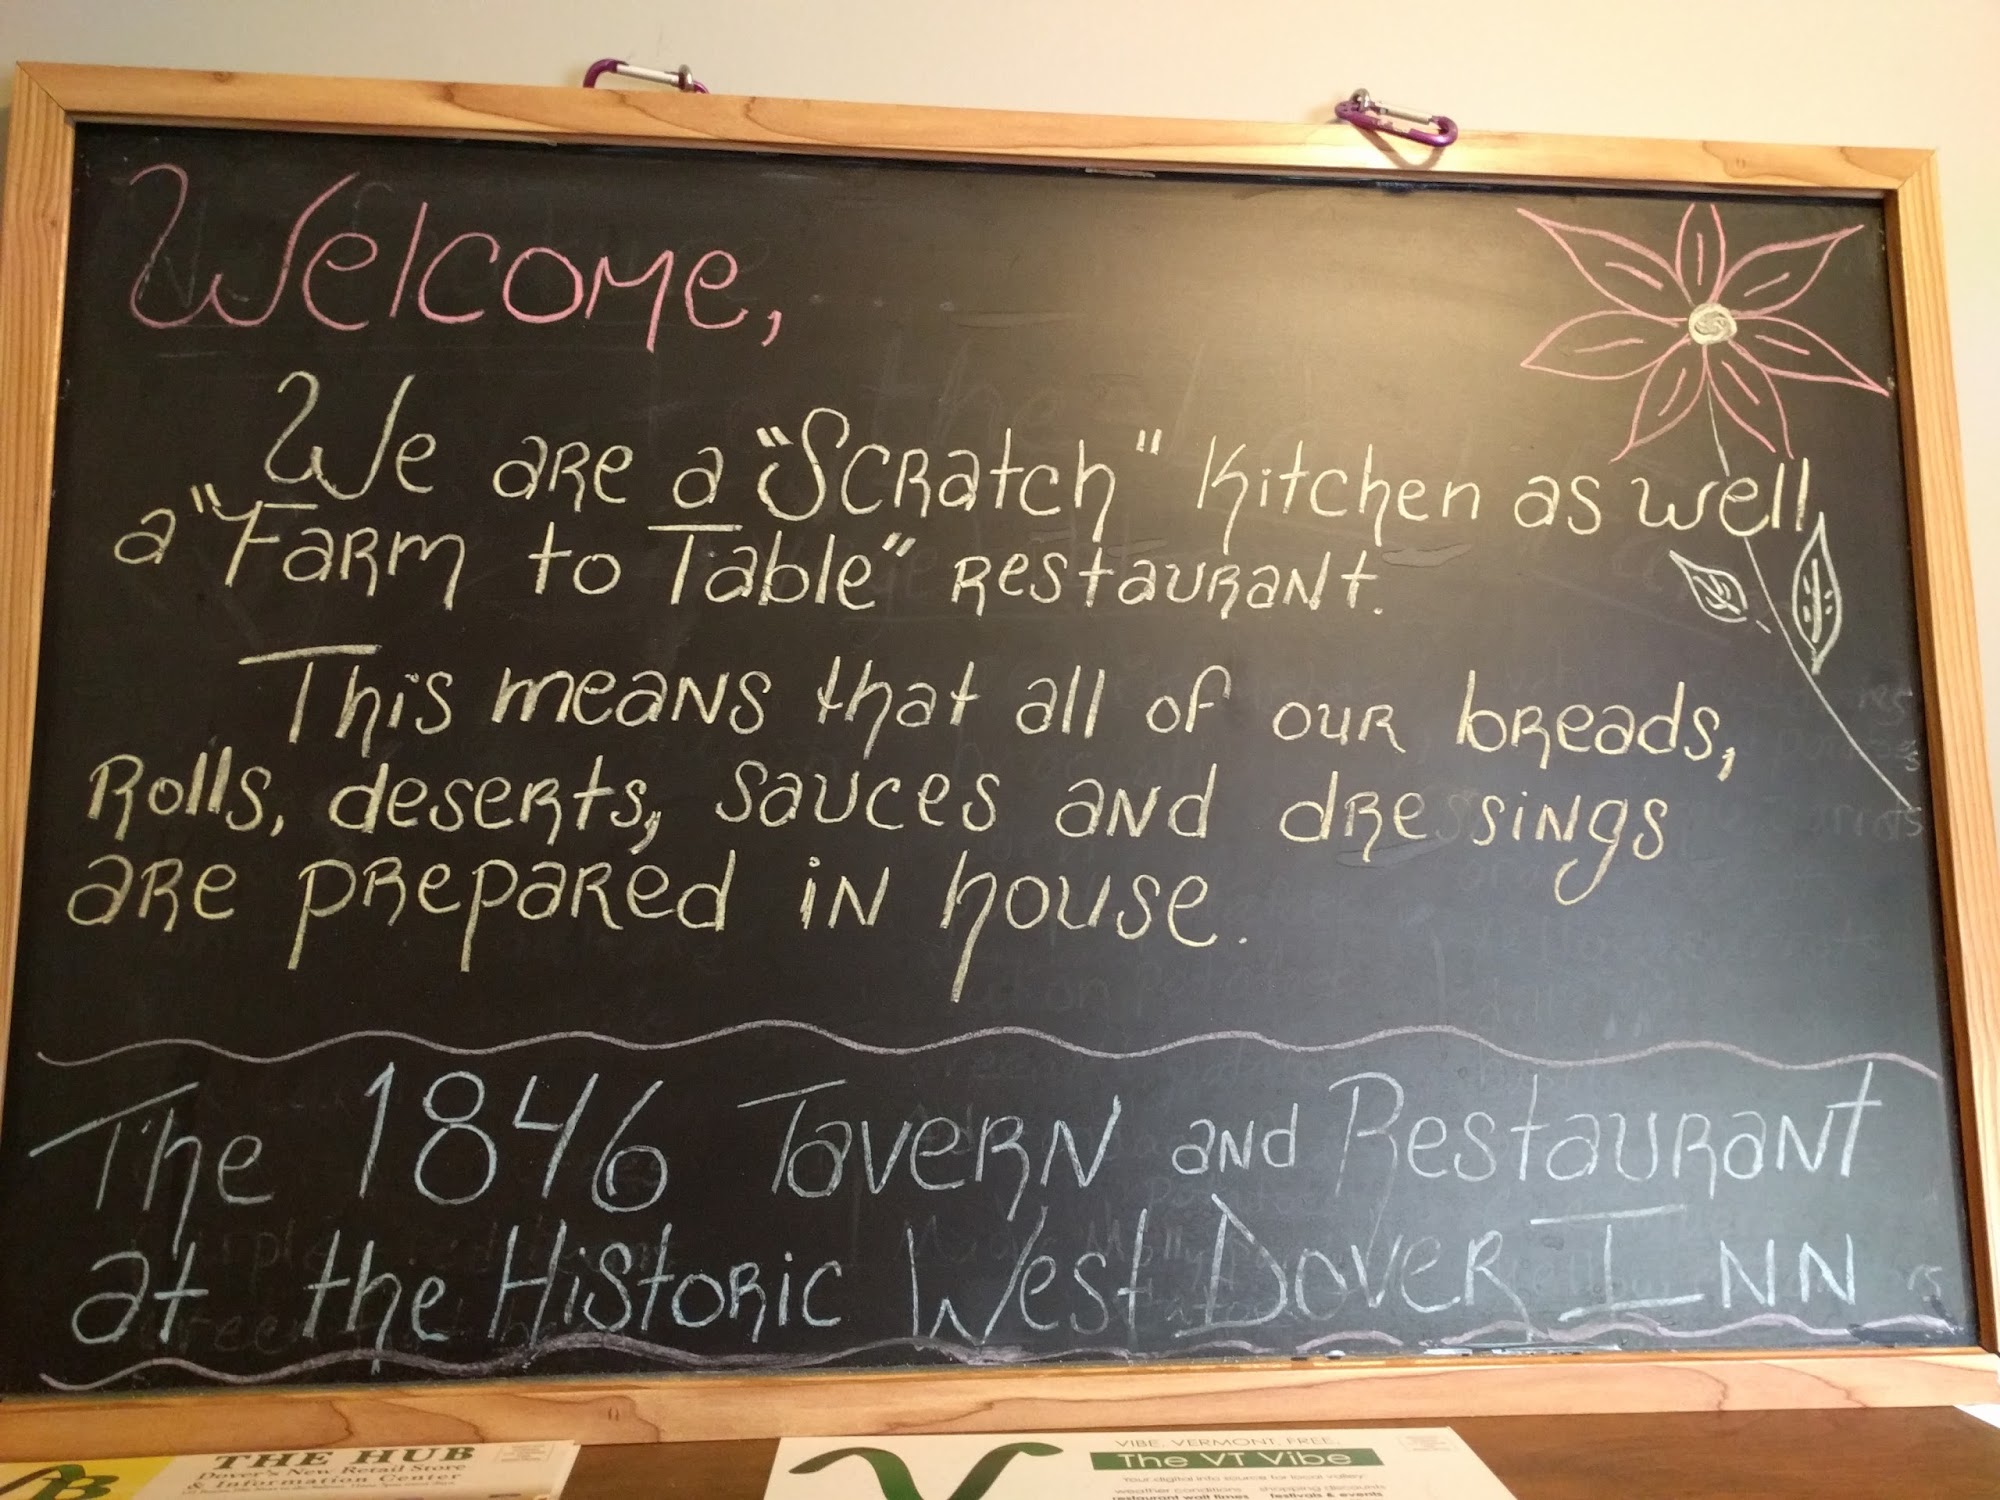 Welcome,
We are a "Scratch" Kitchen as well
a "Farm to Table" restaurant.
This means that all of our breads,
Rolls, deserts, sauces and dressings
are prepared in house.
The 1846 Tavern and Restaurant
at the Historic West Dover Inn
THE HUB
Dover's New Retail Store
& Information Center
VIBE. VERMONT. FREE.
The VT Vibe
Your digital info source for local valley:
weather conditions shopping discounts
restaurant wait times festivals & events